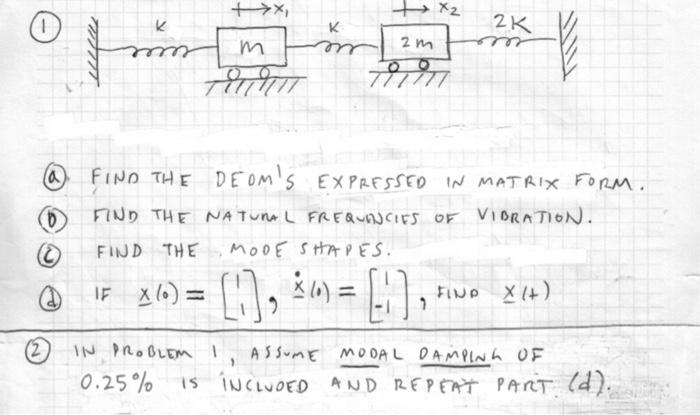 ① →x₁ →x₂
K m K 2m 2K
ⓐ FIND THE DEOM'S EXPRESSED IN MATRIX FORM.
ⓑ FIND THE NATURAL FREQUENCIES OF VIBRATION.
ⓒ FIND THE MODE SHAPES.
ⓓ IF x(0) = [1 1], ẋ(0) = [1 -1], FIND x(t)
② IN PROBLEM 1, ASSUME MODAL DAMPING OF
0.25% IS INCLUDED AND REPEAT PART (d).